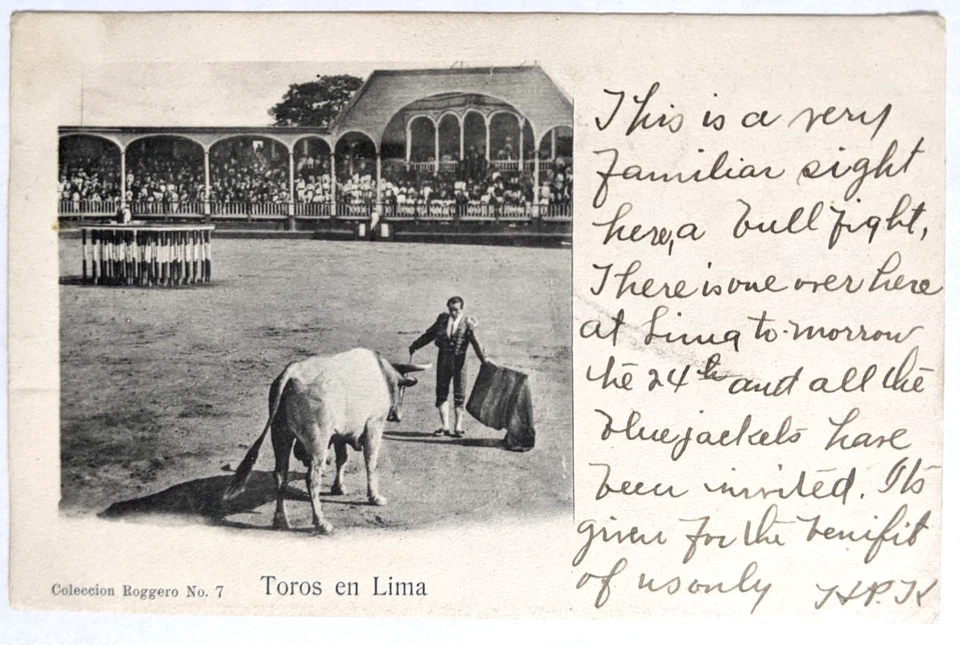 This is a very
familiar sight
here, a bull fight,
There is one over here
at Lima to-morrow
the 24th and all the
bluejackets have
been invited. Its
given for the benifit
of us only H.P.K
Coleccion Roggero No. 7 Toros en Lima